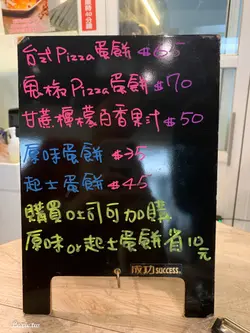 台式Pizza蛋餅 $65
鬼椒Pizza蛋餅 $70
甘蔗檸檬百香果汁 $50
原味蛋餅 $35
起士蛋餅 $45
購買吐司可加購
原味or起士蛋餅省10元
成功 SUCCESS